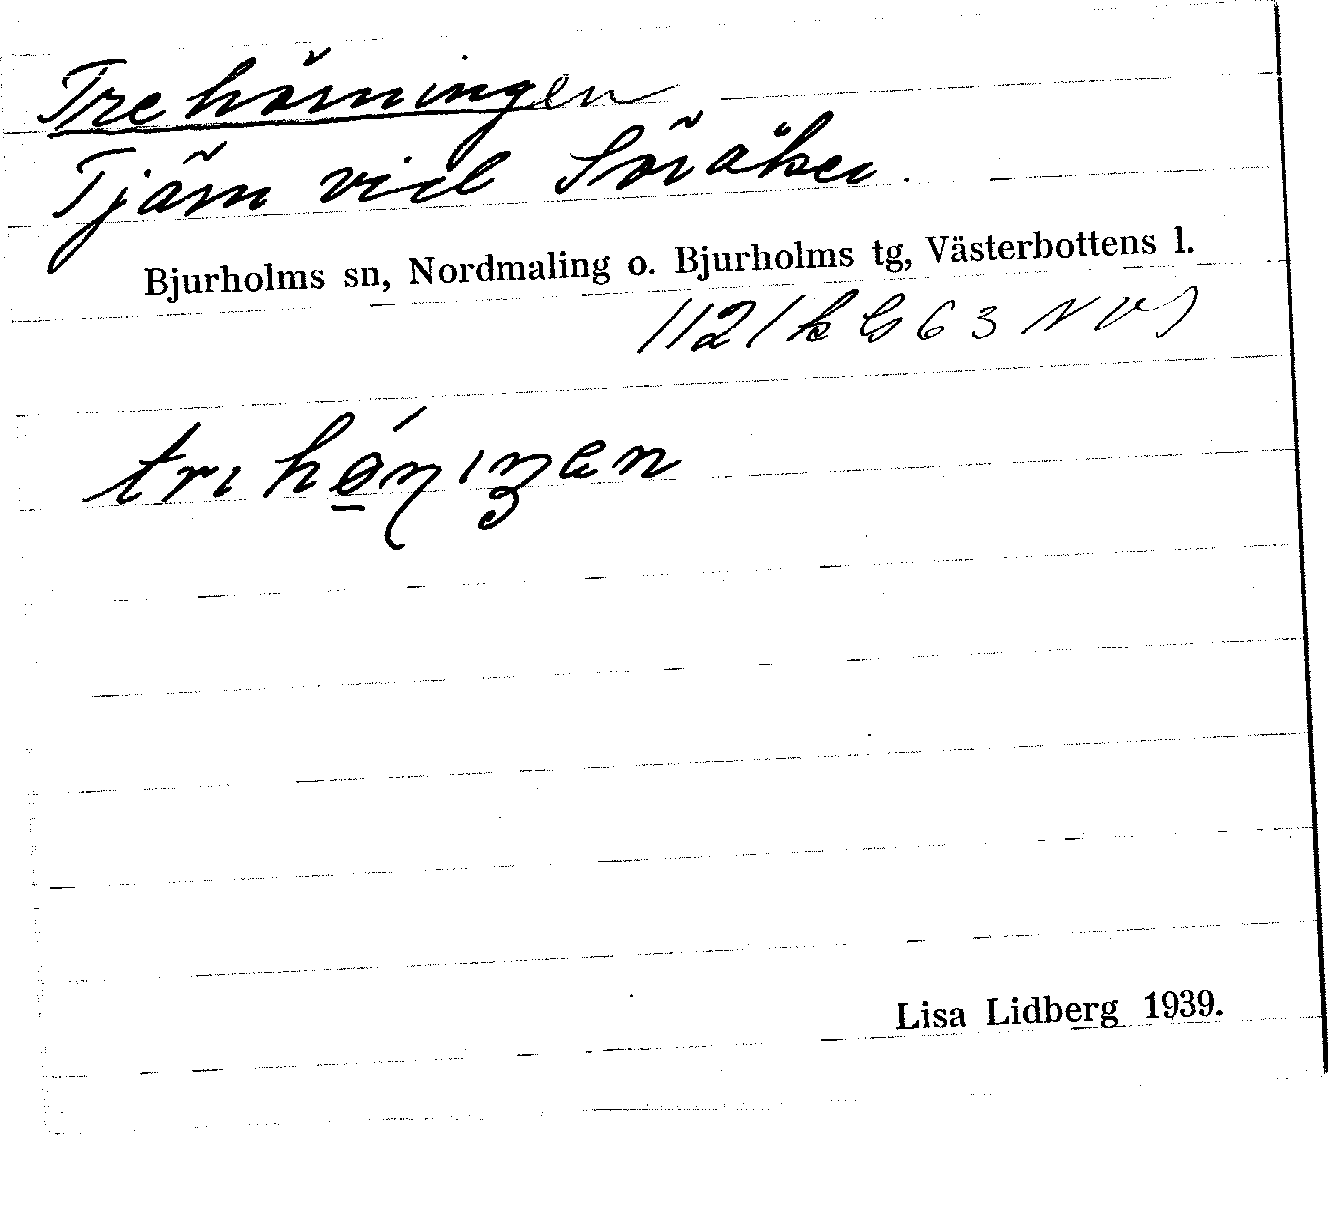 Trehörningen
Tjärn vid Söråker.
Bjurholms sn, Nordmaling o. Bjurholms tg, Västerbottens l.
63 NV
Lisa Lidberg 1939.